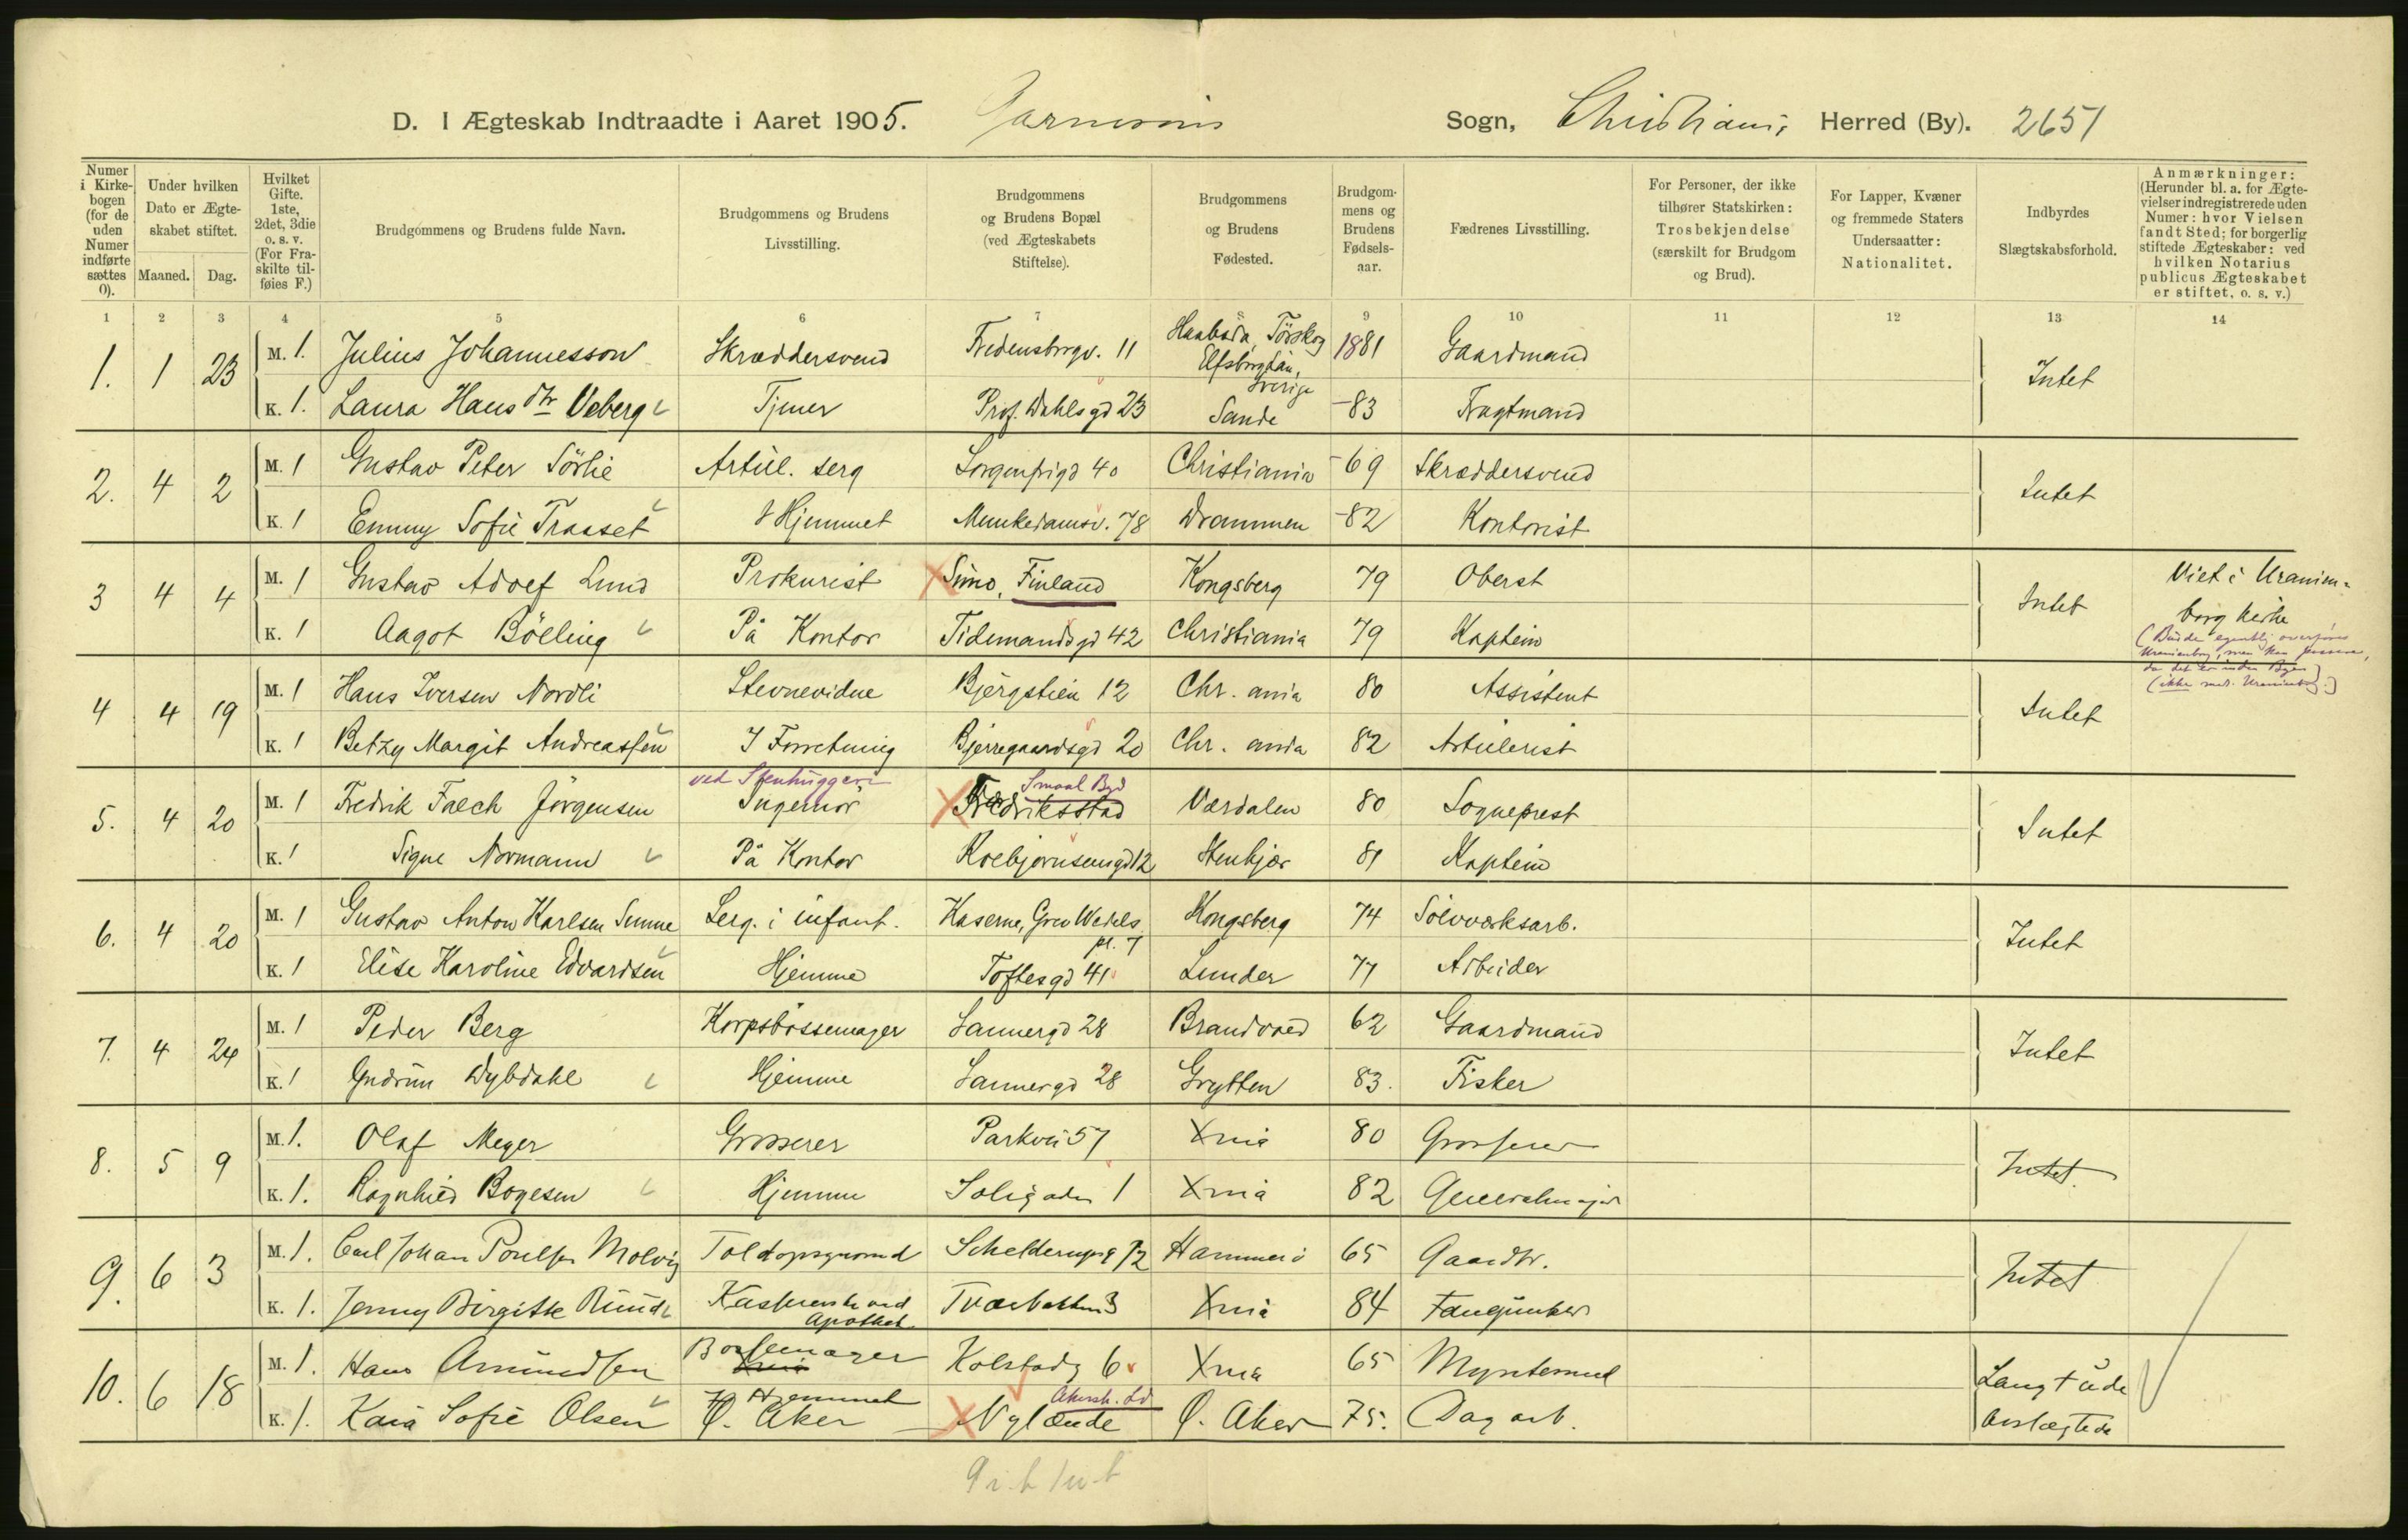 D. I Ægteskab Indtraadte i Aaret 1905. Garnisons Sogn, Christiania Herred (By). 2651
Numer i Kirkebogen (for de uden Numer indførte sættes 0).
Under hvilken Dato er Ægteskabet stiftet.
Maaned. Dag.
Hvilket Gifte. 1ste, 2det, 3die o. s. v. (For Fraskilte tilføies F.)
Brudgommens og Brudens fulde Navn.
Brudgommens og Brudens Livsstilling.
Brudgommens og Brudens Bopæl (ved Ægteskabets Stiftelse).
Brudgommens og Brudens Fødested.
Brudgommens og Brudens Fødselsaar.
Fædrenes Livsstilling.
For Personer, der ikke tilhører Statskirken: Trosbekjendelse (særskilt for Brudgom og Brud).
For Lapper, Kvæner og fremmede Staters Undersaatter: Nationalitet.
Indbyrdes Slægtskabsforhold.
Anmærkninger: (Herunder bl. a. for Ægtevielser indregistrerede uden Numer: hvor Vielsen fandt Sted; for borgerlig stiftede Ægteskaber: ved hvilken Notarius publicus Ægteskabet er stiftet, o. s. v.)
1 2 3 4 5 6 7 8 9 10 11 12 13 14
1. 1 23 M. 1. Julius Johannesson Skræddersvend Fredensborgv. 11 Haabada, Törskog Elfsborglän, Sverige 1881 Gaardmand Intet
K. 1. Laura Hansdtr Veberg Tjener Prof. Dahlsgd 23 Sande -83 Fragtmand
2. 4 2 M. 1 Gustav Peter Sörlie Artill. serg Sorgenfrigd 40 Christiania -69 Skræddersvend Intet
K. 1 Emmy Sofie Traaset I Hjemmet Munkedamsv. 78 Drammen -82 Kontorist
3 4 4 M. 1 Gustav Adolf Lund Prokurist Simo, Finland Kongsberg 79 Oberst Intet Viet i Uranienborg kirke
K. 1 Aagot Bölling På Kontor Tidemandsgd 42 Christiania 79 Kaptein
4 4 19 M. 1 Hans Iversen Nordli Stevnevidne Bjergstien 12 Chr. ania 80 Assistent Intet
K. 1 Betzy Margit Andreassen I Forretning Bjerregaardsgd 20 Chr. ania 82 Artillerist
5. 4 20 M. 1 Fredrik Falch Jörgensen ved Stenhuggeri Ingeniör Smaal Byd Fredriksstad Værdalen 80 Sogneprest Intet
K. 1 Signe Normann På Kontor Kolbjørnsensgd 12 Stenkjær 81 Kaptein
6. 4 20 M. 1 Gustav Anton Karlsen Sunne Serg. i infant. Kaserne, Grev Wedels pl. 7 Kongsberg 74 Sölvværksarb. Intet
K. 1 Elise Karoline Edvardsen Hjemme Toftesgd 41 Lunder 77 Arbeider
7. 4 24 M. 1 Peder Berg Korpsbøssemager Sannergd 28 Brandvold 62 Gaardmand Intet
K. 1 Gudrun Dybdahl Hjemme Sannergd 28 Grytten 83. Fisker
8. 5 9 M. 1. Olaf Meyer Grosserer Parkvei 57 Xnia 80 Grosserer Intet.
K. 1. Ragnhild Bogesen Hjemme Soligaden 1 Xnia 82 Generalmajor
9. 6 3 M. 1. Carl Johan Poulsen Molvig Toldopsynsmd Schelderupsg 12 Hammerö 65 Gaardbr. Intet
K. 1. Jenny Birgitte Rund Kassererske ved Apothek Tværbakken 3 Xnia 84
10. 6 18 M. 1. Hans Amundsen Bøssemager Kolstadg 6 Xnia 65 Myntesmed Langt ude beslægtede
K. 1. Kaia Sofie Olsen Hjemmet Ø. Aker Akersh. Ld Nylænde Ø. Aker 75. Dagarb.